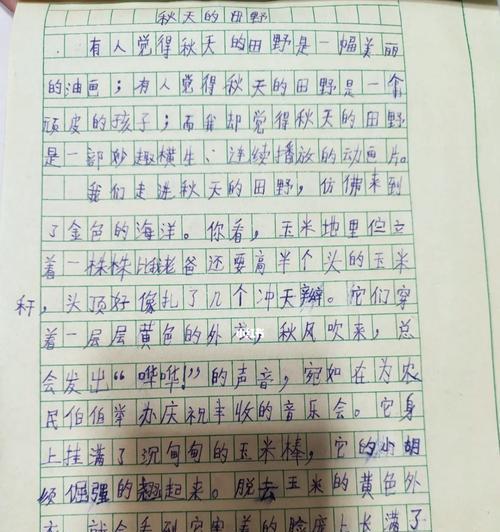 秋天的田野
有人觉得秋天的田野是一幅美丽
的油画；有人觉得秋天的田野是一个
顽皮的孩子；而我却觉得秋天的田野
是一部妙趣横生、连续播放的动画片。
我们走进秋天的田野，仿佛来到
了金色的海洋。你看，玉米地里伫立
着一株株比我老爸还要高半个头的玉米
秆，头顶好像扎了几个冲天辫。它们穿
着一层层黄色的外衣，秋风吹来，总
会发出“哗哗！”的声音，宛如在为农
民伯伯举办庆祝丰收的音乐会。它身
上挂满了沉甸甸的玉米棒，它的小胡
须倔强的翘起来。脱去玉米的黄色外
衣，就会看到它害羞的脸庞上长满了